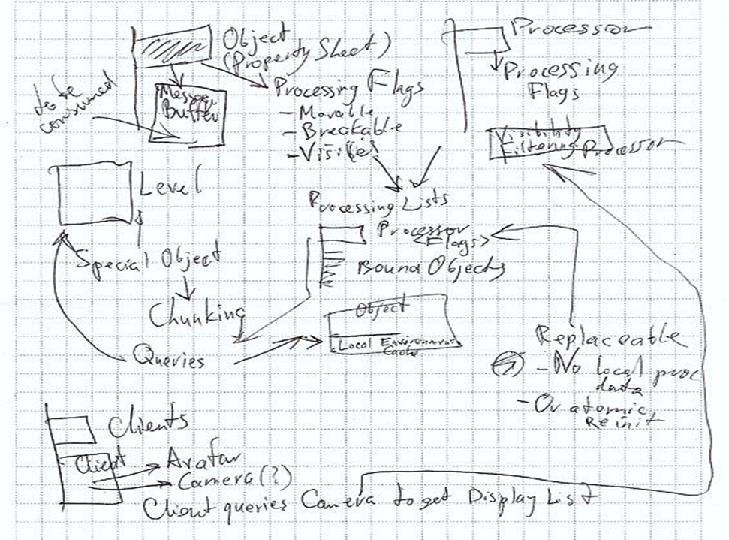 Object
(Property Sheet)
Message
Buffer
to be
consumed
Processing Flags
- Movable
- Breakable
- Visible
Processor
Processing
Flags
Visibility
Filtering Processor
Level
Special Object
Chunking
Queries
Processing Lists
Processor
<Flags>
Bound Objects
Object
Local Environment
Cache
Replaceable
- No local proc
data
- Or atomic
Reinit
Clients
Client
Avatar
Camera (?)
Client queries Camera to get Display List